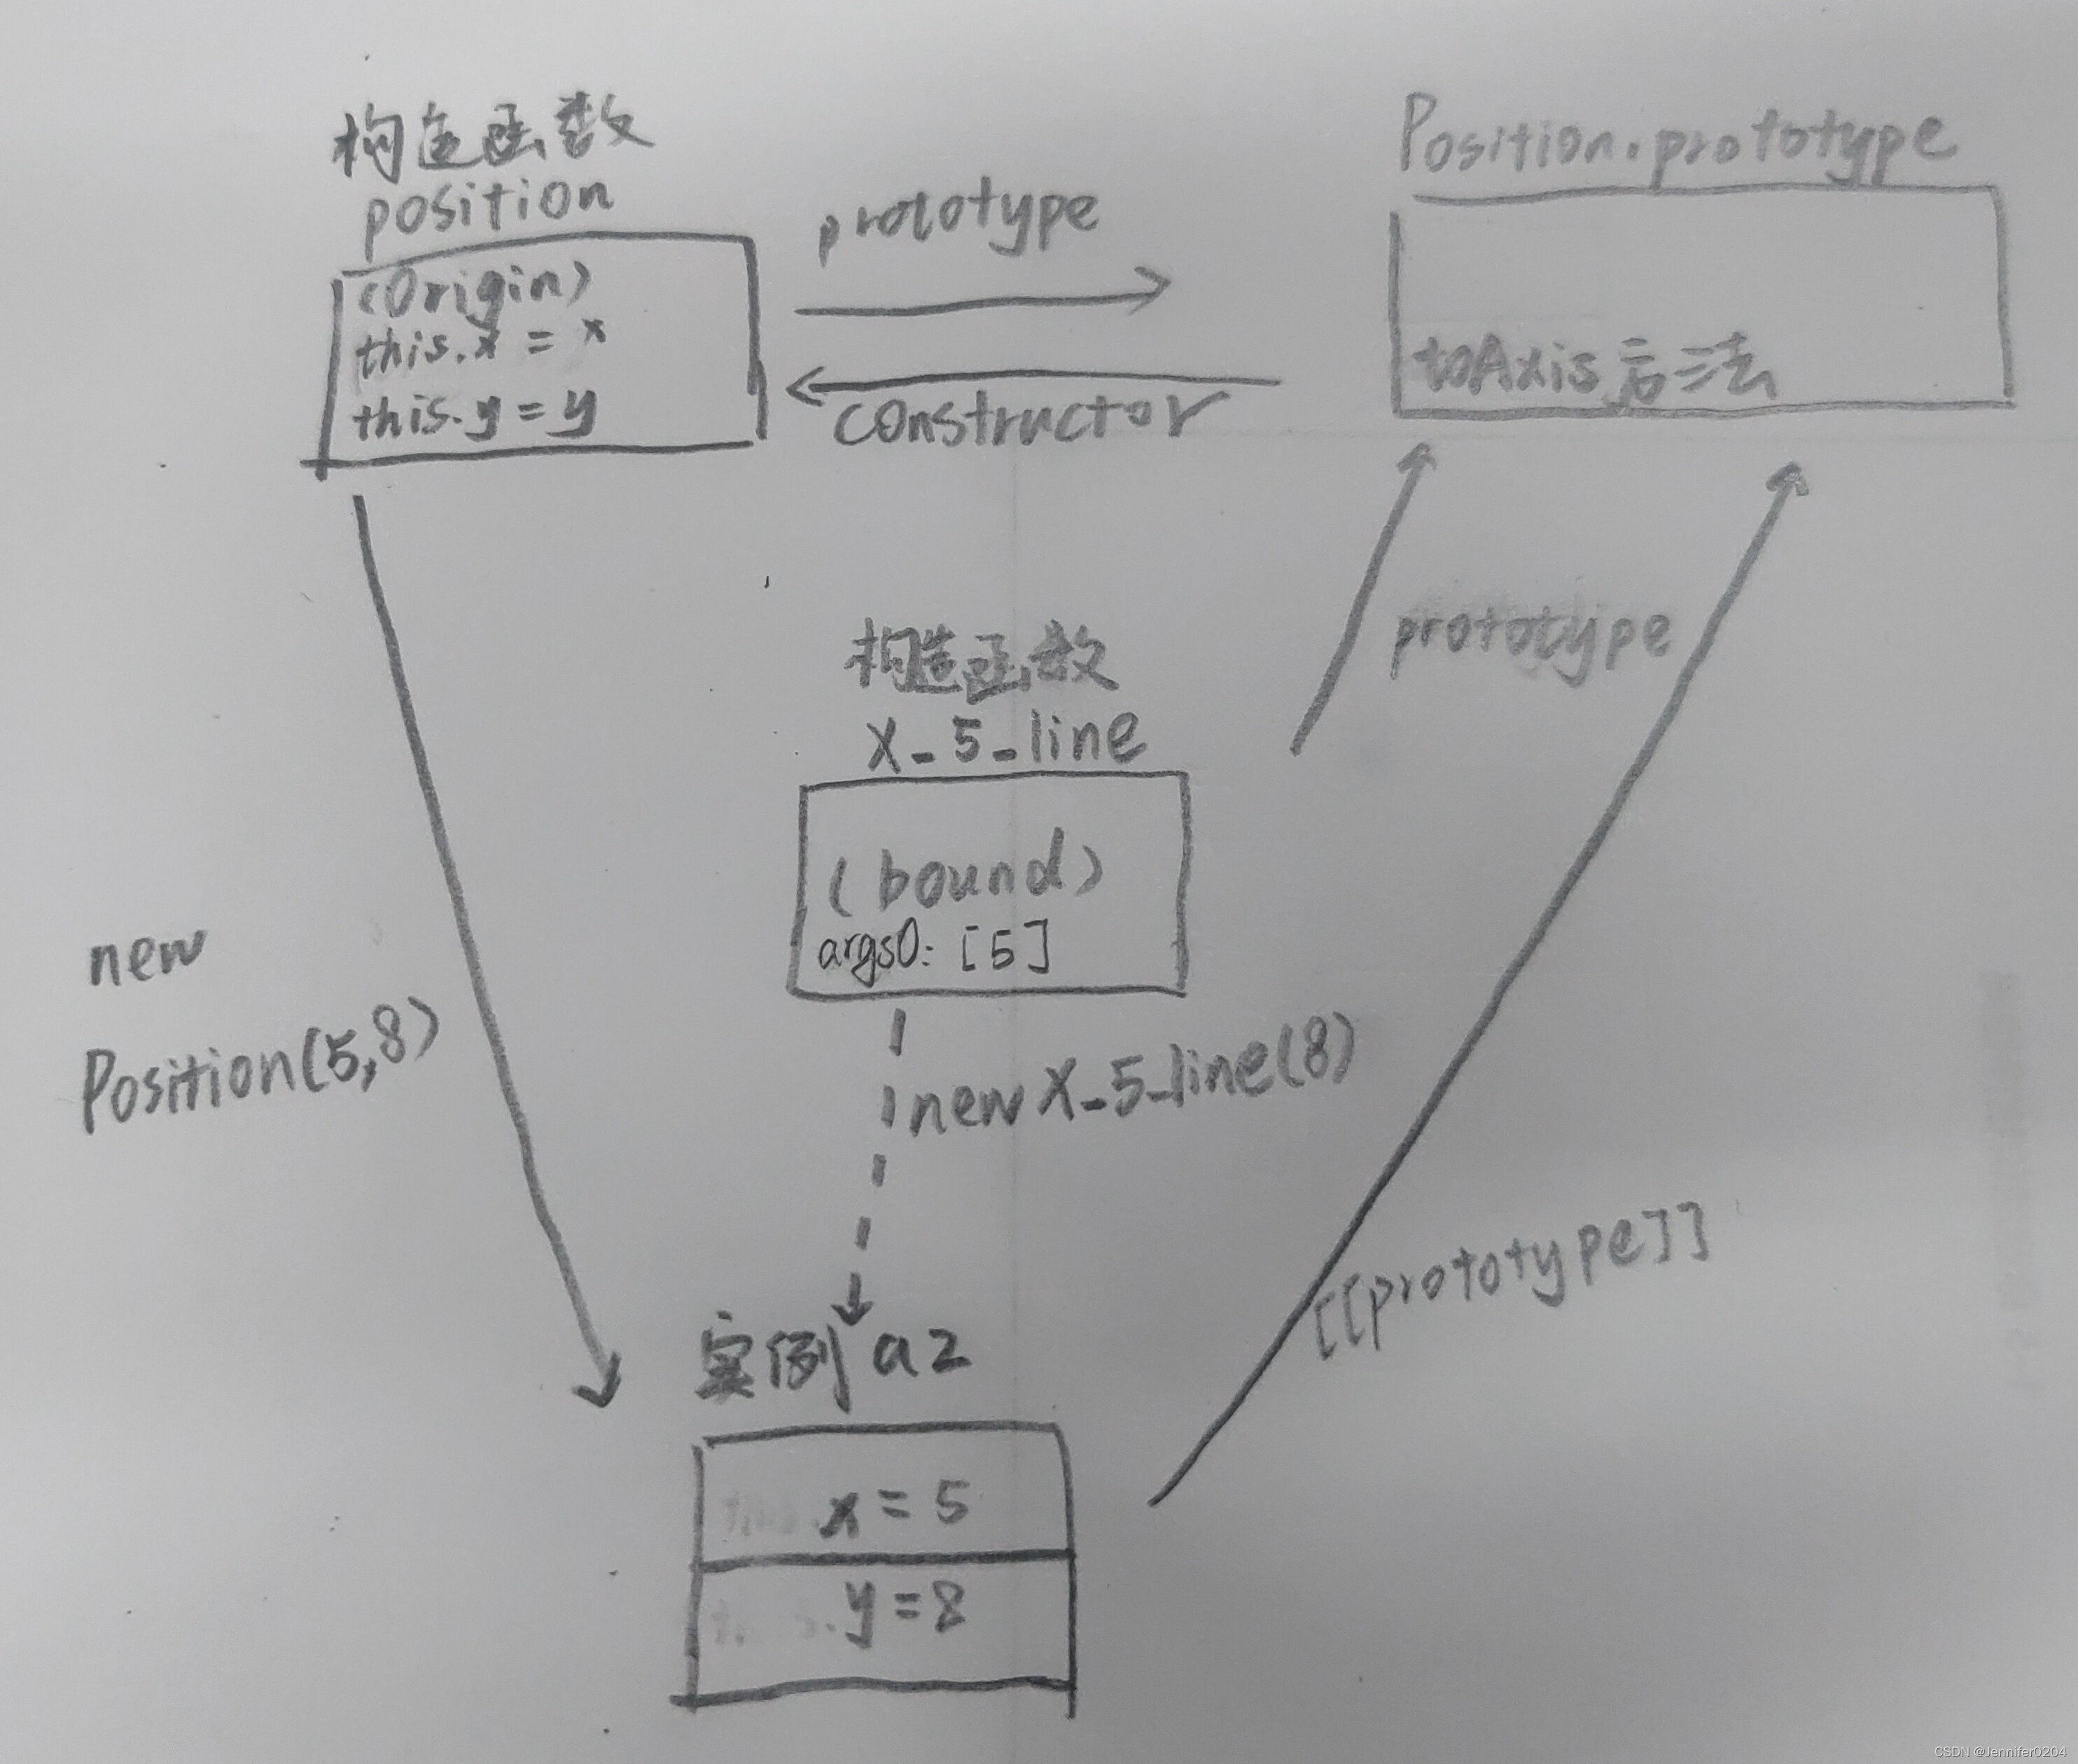 构造函数
position
(Origin)
this.x = x
this.y = y
prototype
constructor
Position.prototype
toAxis方法
prototype
构造函数
X_5_line
(bound)
args0: [5]
new X_5_line(8)
new
Position(5,8)
[[prototype]]
实例 a2
x = 5
y = 8
CSDN @Jennifer0204